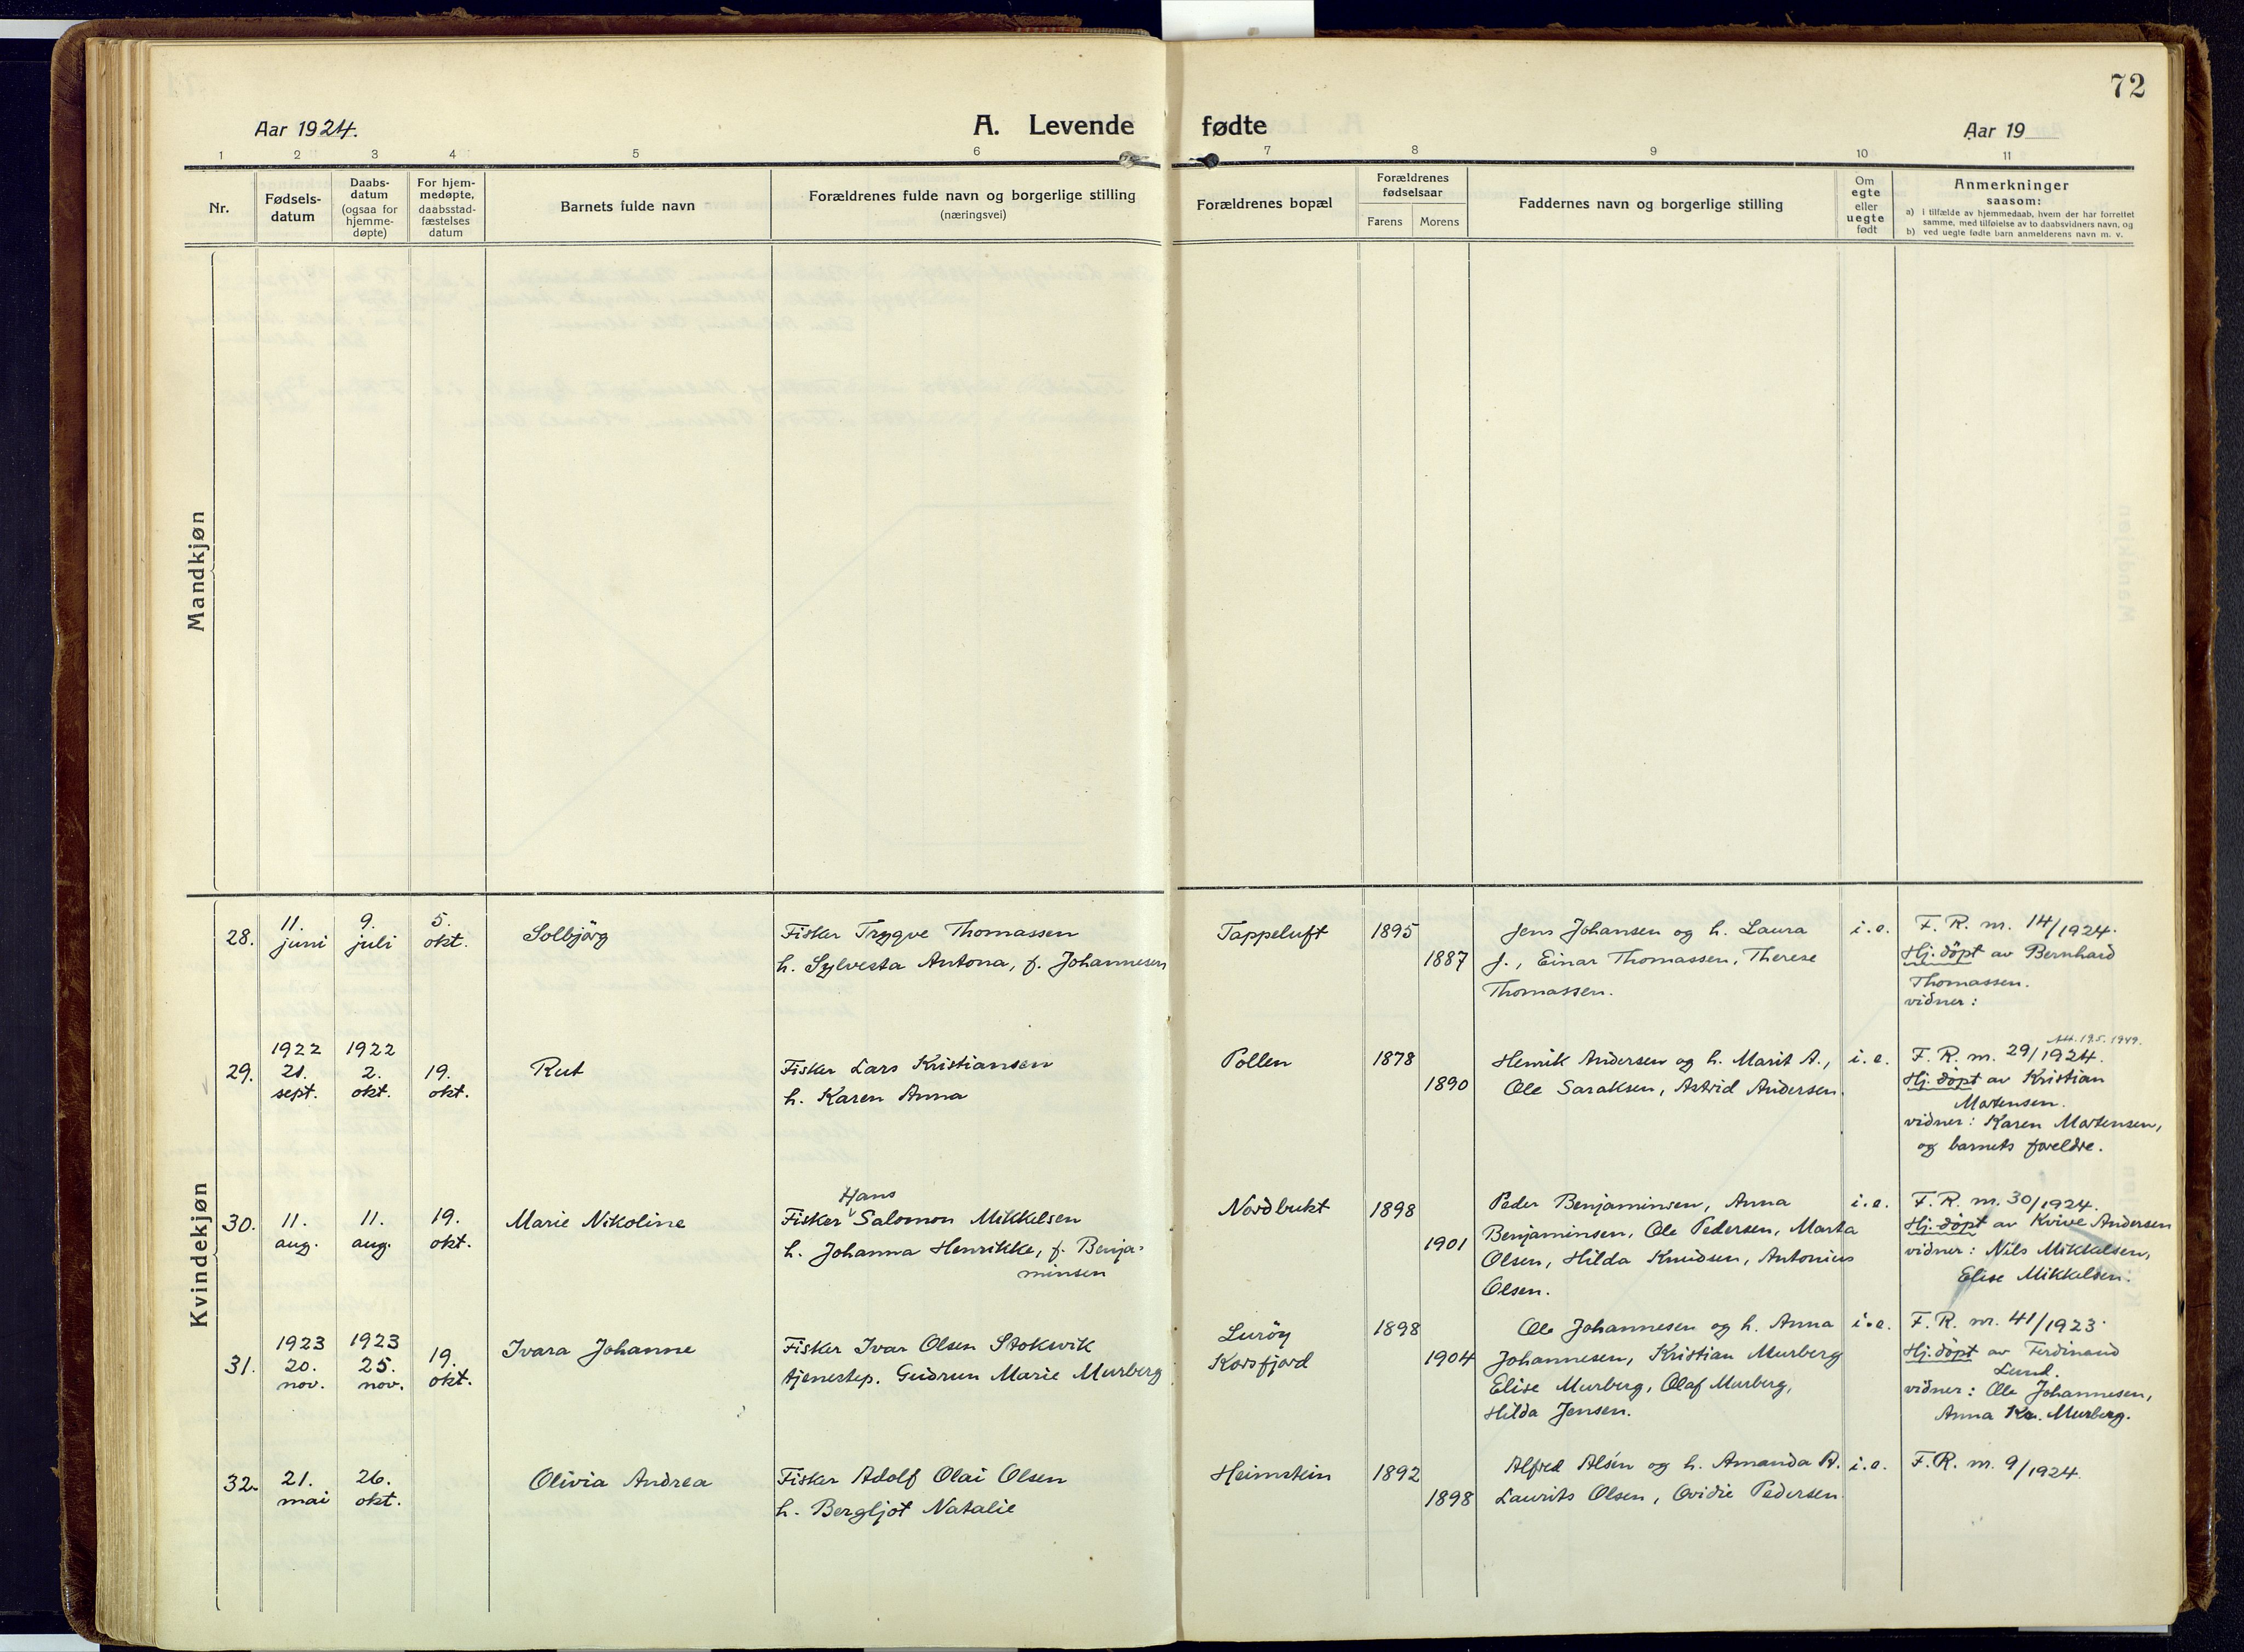 72
Aar 1924.
A. Levende fødte
Aar 19
1 2 3 4 5 6 7 8 9 10 11
Nr.
Fødsels-
datum
Daabs-
datum
(ogsaa for
hjemme-
døpte)
For hjem-
medøpte,
daabsstad-
fæstelses
datum
Barnets fulde navn
Forældrenes fulde navn og borgerlige stilling
(næringsvei)
Forældrenes bopæl
Forældrenes
fødselsaar
Farens Morens
Faddernes navn og borgerlige stilling
Om
egte
eller
uegte
født
Anmerkninger
saasom:
a) i tilfælde av hjemmedaab, hvem der har forrettet
samme, med tilføielse av to daabsvidners navn, og
b) ved uegte fødte barn anmelderens navn m. v.
Mandkjøn
Kvindekjøn
28.
11.
juni
9.
juli
5.
okt.
Solbjörg
Fisker Trygve Thomassen
h. Sylvesta Antona, f. Johannesen
Tappeluft
1895
1887
Jens Johansen og h. Laura
J., Einar Thomassen, Therese
Thomassen.
i.e.
F. R. nr. 14/1924.
Hj. döpt av Bernhard
Thomassen.
vidner:
29.
1922
21.
sept.
1922
2.
okt.
19.
okt.
Rut
Fisker Lars Kristiansen
h. Karen Anna
Pollen
1878
1890
Henrik Andersen og h. Marit A.,
Ole Saraksen, Astrid Andersen.
i.e.
Att. 19.5.1949.
F. R. nr. 29/1924.
Hj. döpt av Kristian
Mortensen.
vidner: Karen Mortensen,
og barnets foreldre.
30.
11.
aug.
11.
aug.
19.
okt.
Marie Nikoline
Hans
Fisker Salomon Mikkelsen
h. Johanna Henrikke, f. Benja-
minsen
Nordbukt
1898
1901
Peder Benjaminsen, Anna
Benjaminsen, Ole Pedersen, Marta
Olsen, Hilda Knudsen, Antonius
Olsen.
i.e.
F. R. nr. 30/1924.
Hj. döpt av Kvive Andersen
vidner: Nils Mikkelsen,
Elise Mikkelsen.
31.
1923
20.
nov.
1923
25.
nov.
19.
okt.
Ivara Johanne
Fisker Ivar Olsen Stokvik
tjenestep. Gudrun Marie Murberg
Luröy
Korsfjord
1898
1904
Ole Johannesen og h. Anna
Johannesen, Kristian Murberg
Elise Murberg, Olaf Murberg,
Hilda Jensen.
i.e.
F. R. nr. 41/1923.
Hj. döpt av Ferdinand
Lund.
vidner: Ole Johannesen,
Anna Kr. Murberg.
32.
21.
mai
26.
okt.
Olivia Andrea
Fisker Adolf Olai Olsen
h. Bergljot Natalie
Heimstein
1892
1898
Alfred Alsén og h. Amanda A.
Laurits Olsen, Ovidie Pedersen.
i.e.
F. R. nr. 9/1924.